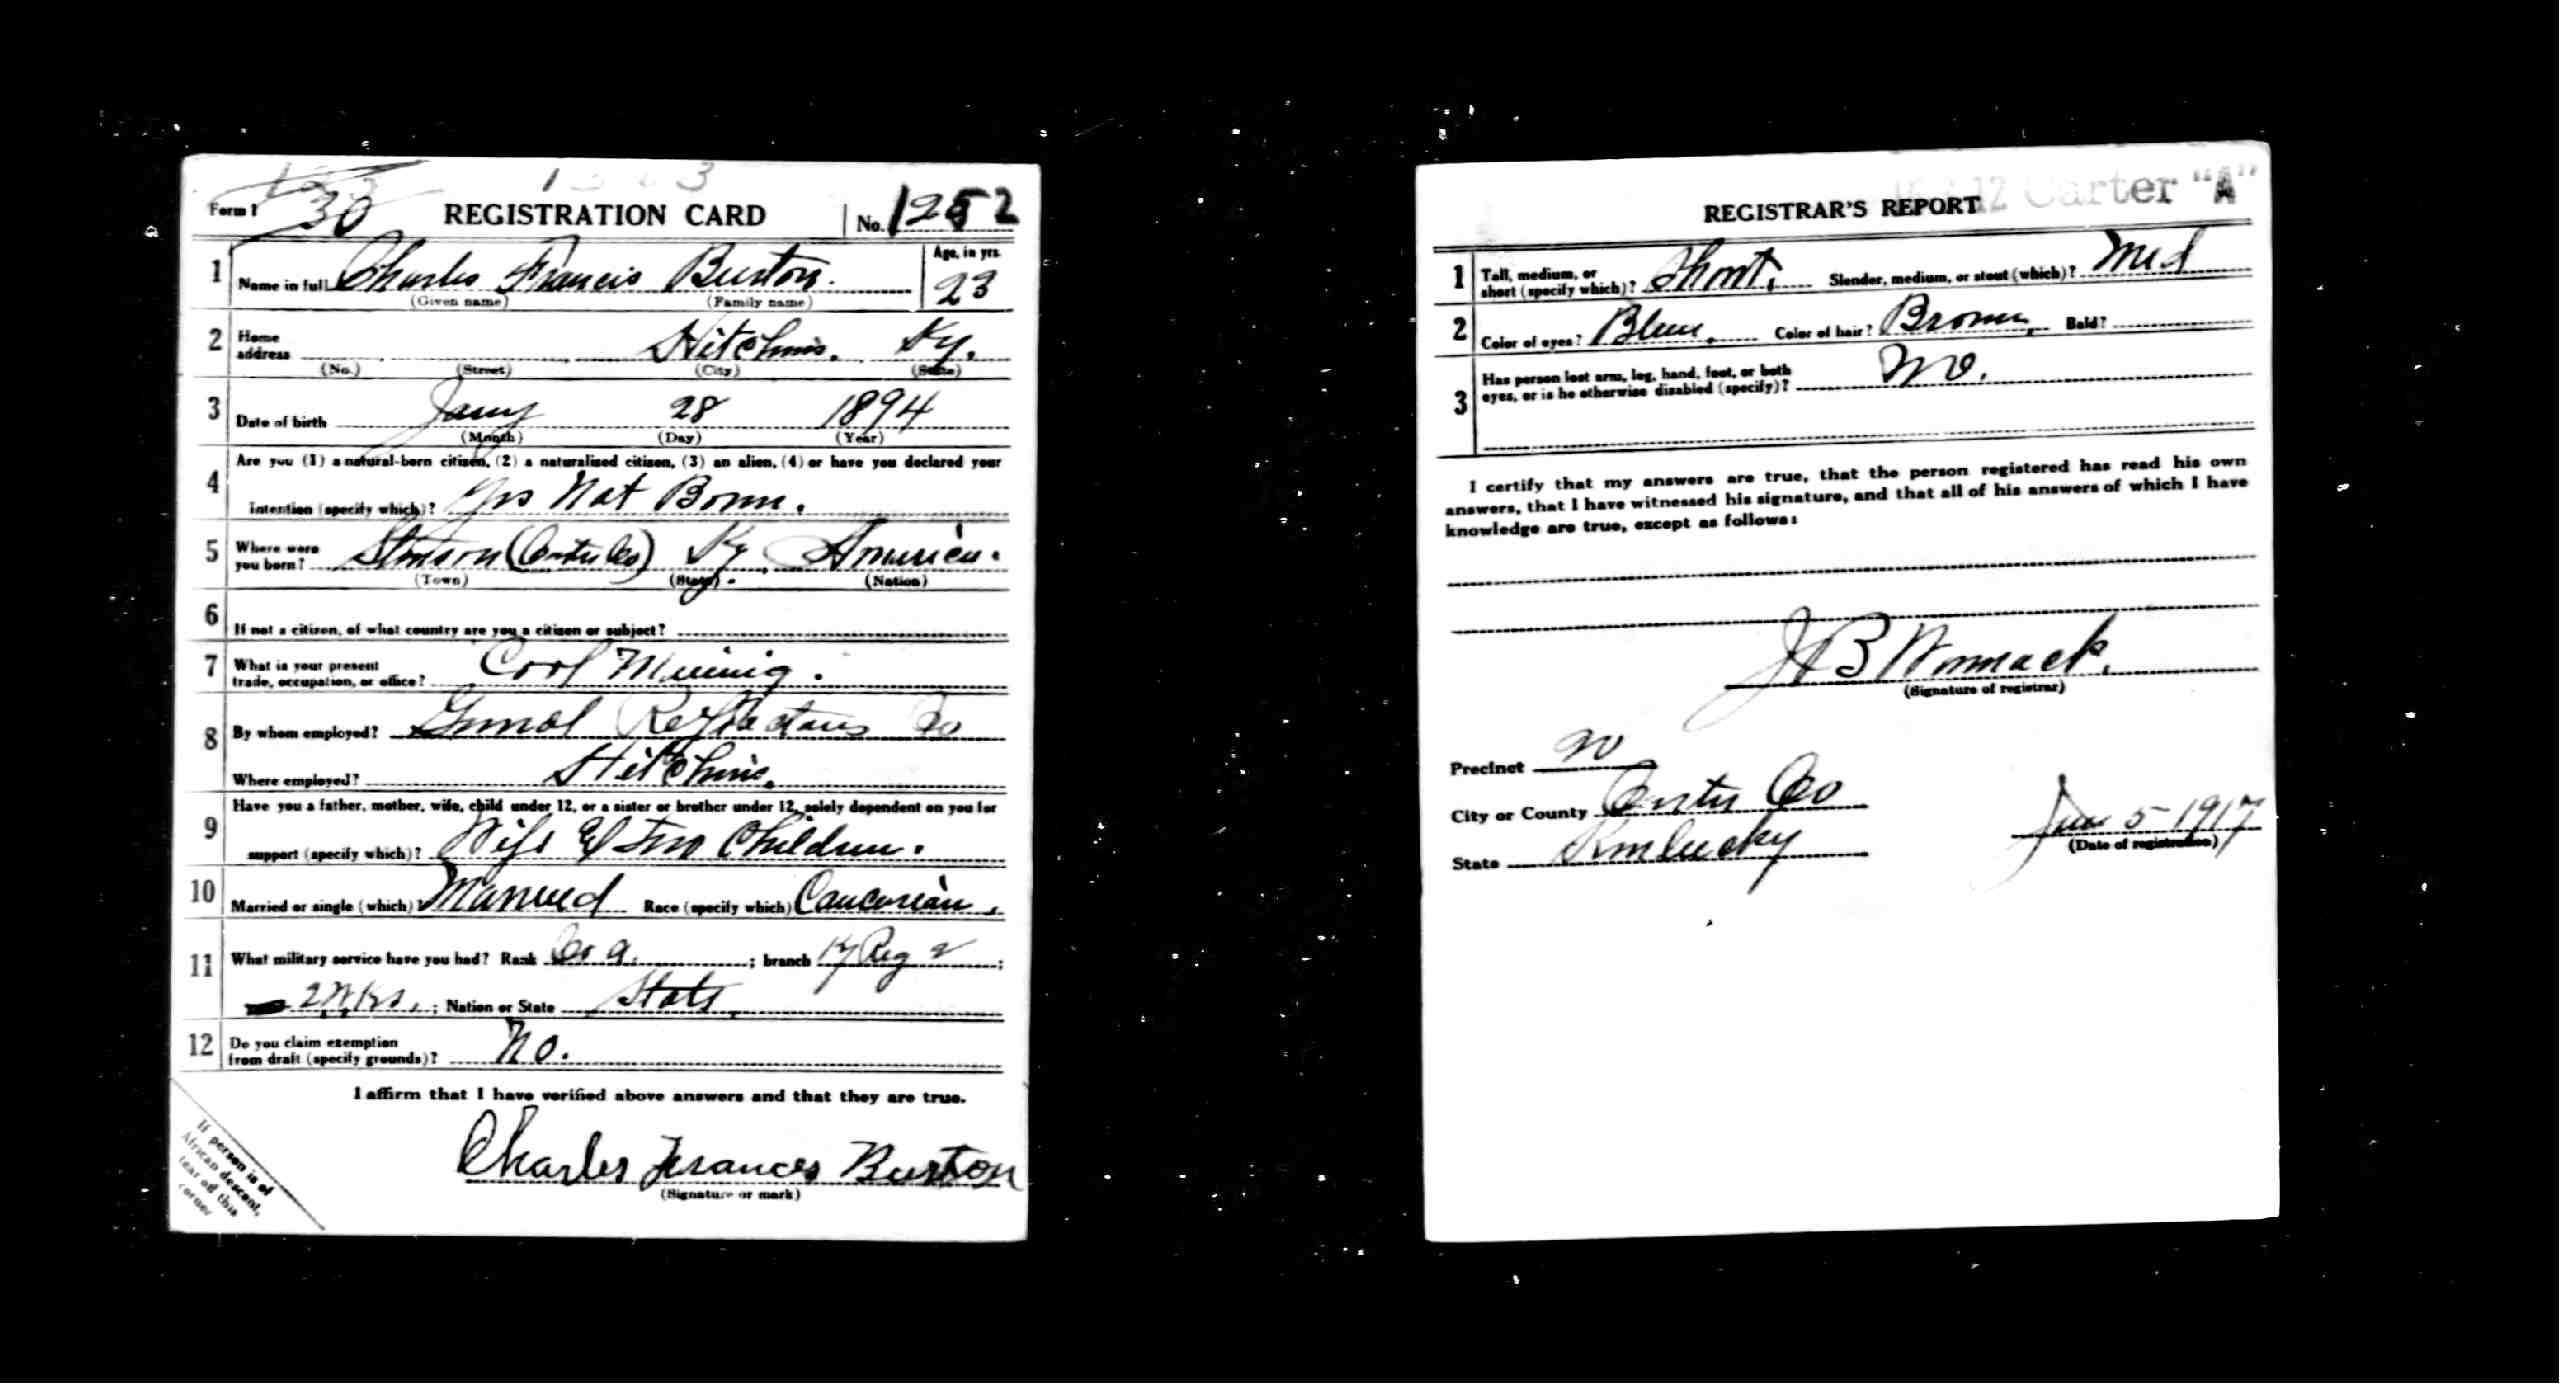 1 3 3
Form 1 30 REGISTRATION CARD No. 1252
1 Name in full Charles Francis Burton. Age, in yrs. 23
(Given name) (Family name)
2 Home address Hitchins. Ky.
(No.) (Street) (City) (State)
3 Date of birth Jany 28 1894
(Month) (Day) (Year)
4 Are you (1) a natural-born citizen, (2) a naturalized citizen, (3) an alien, (4) or have you declared your
intention (specify which)? Yes Nat Born.
5 Where were you born? Stinson (Carter Co) Ky. America.
(Town) (State) (Nation)
6 If not a citizen, of what country are you a citizen or subject?
7 What is your present trade, occupation, or office? Cool Mining.
8 By whom employed? Genral Co
Where employed? Hitchins.
9 Have you a father, mother, wife, child under 12, or a sister or brother under 12, solely dependent on you for
support (specify which)? Wife & Two Children.
10 Married or single (which)? Married Race (specify which) Caucasian.
11 What military service have you had? Rank Co A. ; branch Ky Reg 2 ;
2 Wks. ; Nation or State State
12 Do you claim exemption from draft (specify grounds)? No.
I affirm that I have verified above answers and that they are true.
Charles Frances Burton
(Signature or mark)
If person is of
African descent,
tear off this
corner
12 Carter "A"
REGISTRAR'S REPORT
1 Tall, medium, or short (specify which)? Short. Slender, medium, or stout (which)? Med
2 Color of eyes? Blue. Color of hair? Brown. Bald?
3 Has person lost arm, leg, hand, foot, or both eyes, or is he otherwise disabled (specify)? No.
I certify that my answers are true, that the person registered has read his own
answers, that I have witnessed his signature, and that all of his answers of which I have
knowledge are true, except as follows:
J B Womack.
(Signature of registrar)
Precinct
City or County Carter Co
State Kentucky
June 5 1917
(Date of registration)